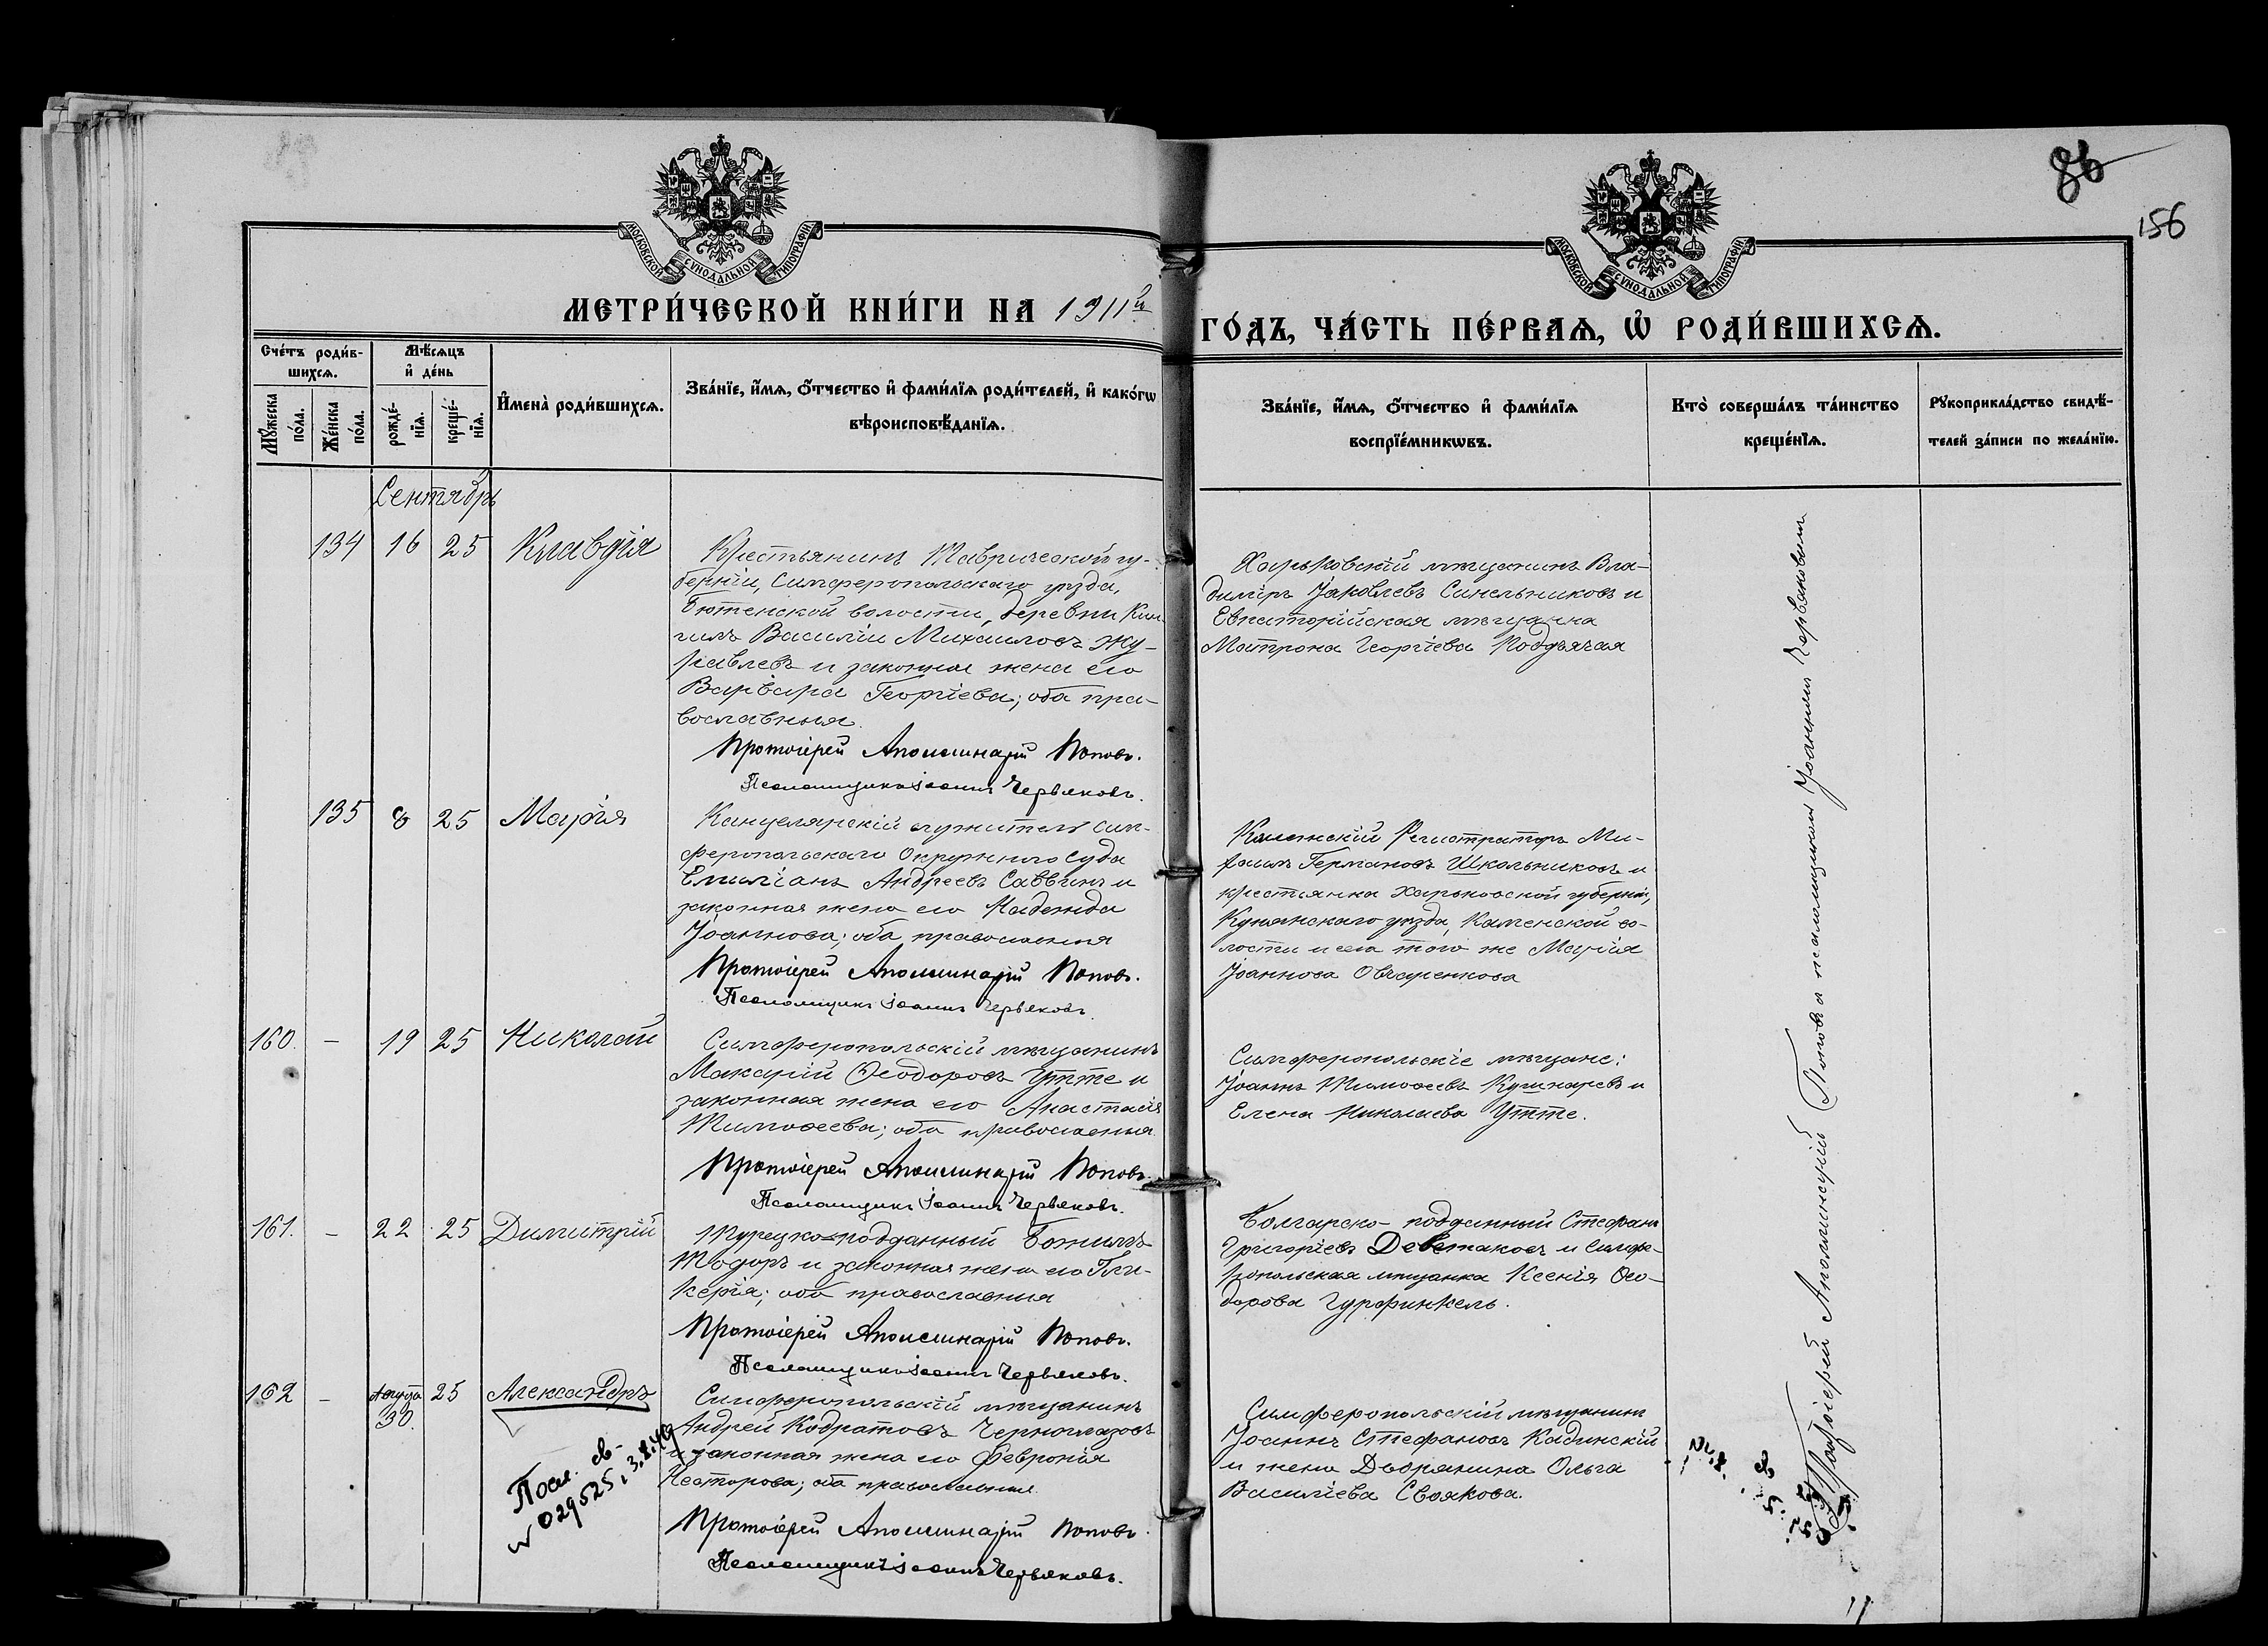 86
156
МОСКОВСКОЙ СѴНОДАЛЬНОЙ ТИПОГРАФІИ
МОСКОВСКОЙ СѴНОДАЛЬНОЙ ТИПОГРАФІИ
МЕТРИ́ЧЕСКОЙ КНИ́ГИ НА 1911й
ГО́ДЪ, ЧА́СТЬ ПЕ́РВАѦ, Ѡ҆ РОДИ́ВШИХСѦ.
Сче́тъ роди́в-
шихсѧ.
Мꙋ́жеска по́ла.
Же́нска по́ла.
Мѣ́сѧцъ
и҆ де́нь
рожде́-нїѧ.
креще́-нїѧ.
И҆мена̀ роди́вшихсѧ.
Зва́нїе, и҆́мѧ, ѻ҆́тчество и҆ фами́лїѧ роди́телей, и҆ како́гѡ
вѣроисповѣ́данїѧ.
Зва́нїе, и҆́мѧ, ѻ҆́тчество и҆ фами́лїѧ
воспрїе́мникѡвъ.
Кто̀ соверша́лъ та́инство
креще́нїѧ.
Рꙋкоприкла́дство свидѣ́-
телей за́писи по жела́нїю.
Сентябрь
134 16 25 Клавдія
Крестьянинъ Таврической гу-
берніи, Симферопольскаго уѣзда,
Бютенской волости, деревни
Василій Михаиловъ Жу-
равлевъ и законная жена его
Варвара Георгіева; оба пра-
вославныя.
Протоіерей Аполлинарій Поповъ.
Псаломщикъ Іоаннъ Червяковъ.
Харьковскій мѣщанинъ Вла-
диміръ Іаковлевъ Синельниковъ и
Евпаторійская мѣщанка
Матрона Георгіева Поддъячая
135 8 25 Марія
Канцелярскій служитель Сим-
феропольскаго Окружного Суда
Емиліанъ Андреевъ Саввинъ и
законная жена его Надежда
Іоаннова; оба православныя
Протоіерей Аполлинарій Поповъ.
Псаломщикъ Іоаннъ Червяковъ.
Регистраторъ Ми-
хаилъ Германовъ Школьниковъ и
крестьянка Харьковской губерніи,
Купянскаго уѣзда, Каменской во-
лости и села того же Марія
Іоаннова Овчаренкова
160. – 19 25 Николай
Симферопольскій мѣщанинъ
Макарій Ѳеодоровъ Утте и
законная жена его Анастасія
Тимоѳеева; оба православныя.
Протоіерей Аполлинарій Поповъ.
Псаломщикъ Іоаннъ Червяковъ.
Симферопольскіе мѣщане:
Іоаннъ Тимоѳеевъ Кушнаревъ и
Елена Николаева Утте.
161. – 22 25 Димитрій
Турецко-подданный Божилъ
Тодоръ и законная жена его Гли-
керія; оба православныя
Протоіерей Аполлинарій Поповъ.
Псаломщикъ Іоаннъ Червяковъ.
Болгарско-подданный Стефанъ
Григоріевъ Деветаковъ и Симфе-
ропольская мѣщанка Ксенія Ѳео-
дорова Гурфинкель.
162 – Августа 30. 25 Александръ
Симферопольскій мѣщанинъ
Андрей Кодратовъ Черноглазовъ
и законная жена его Февронія
Несторова; оба православныя.
Протоіерей Аполлинарій Поповъ.
Псаломщикъ Іоаннъ Червяковъ.
Симферопольскій мѣщанинъ
Іоаннъ Стефановъ Кадинскій
и жена Дворянина Ольга
Василіева Своякова.
029525
Протоіерей Аполлинарій Поповъ и псаломщикъ Іоаннъ Червяковъ